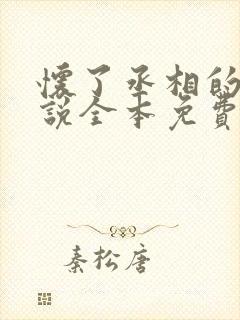 懷了丞相的
說全本免費
秦松唐